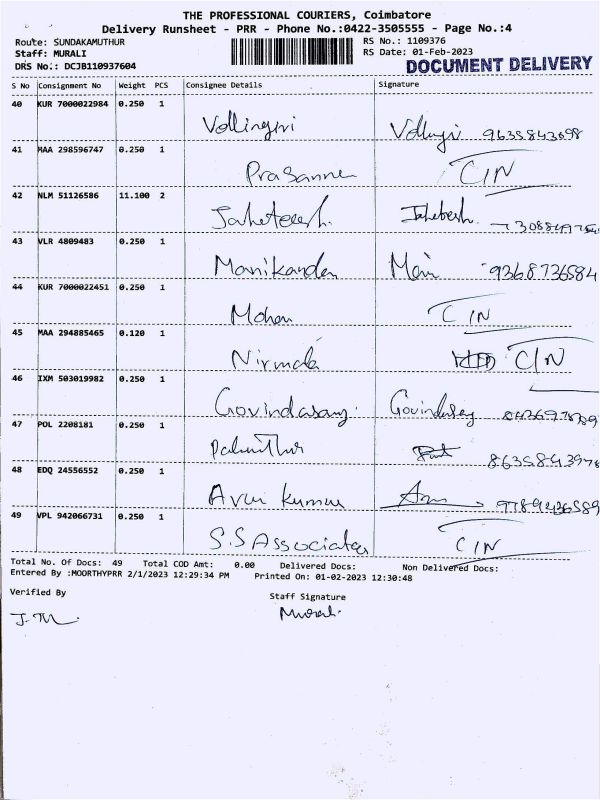 THE PROFESSIONAL COURIERS, Coimbatore
Delivery Runsheet - PRR - Phone No.:0422-3505555 - Page No.:4
Route: SUNDAKAMUTHUR RS No.: 1109376
Staff: MURALI RS Date: 01-Feb-2023
DRS No.: DCJB110937604 DOCUMENT DELIVERY
S No Consignment No Weight PCS Consignee Details Signature
40 KUR 7000022984 0.250 1
Vellingiri
41 MAA 298596747 0.250 1
Prasanna CIN
42 NLM 51126586 11.100 2
43 VLR 4809483 0.250 1
Manikandan Mani 9368736584
44 KUR 7000022451 0.250 1
Mohan CIN
45 MAA 294885465 0.120 1
Nirmala CIN
46 IXM 503019982 0.250 1
Govindasamy
47 POL 2208181 0.250 1
48 EDQ 24556552 0.250 1
Arun Kumar 9789436589
49 VPL 942066731 0.250 1
S.S Associates CIN
Total No. Of Docs: 49 Total COD Amt: 0.00 Delivered Docs: Non Delivered Docs:
Entered By :MOORTHYPRR 2/1/2023 12:29:34 PM Printed On: 01-02-2023 12:30:48
Verified By Staff Signature
Murali